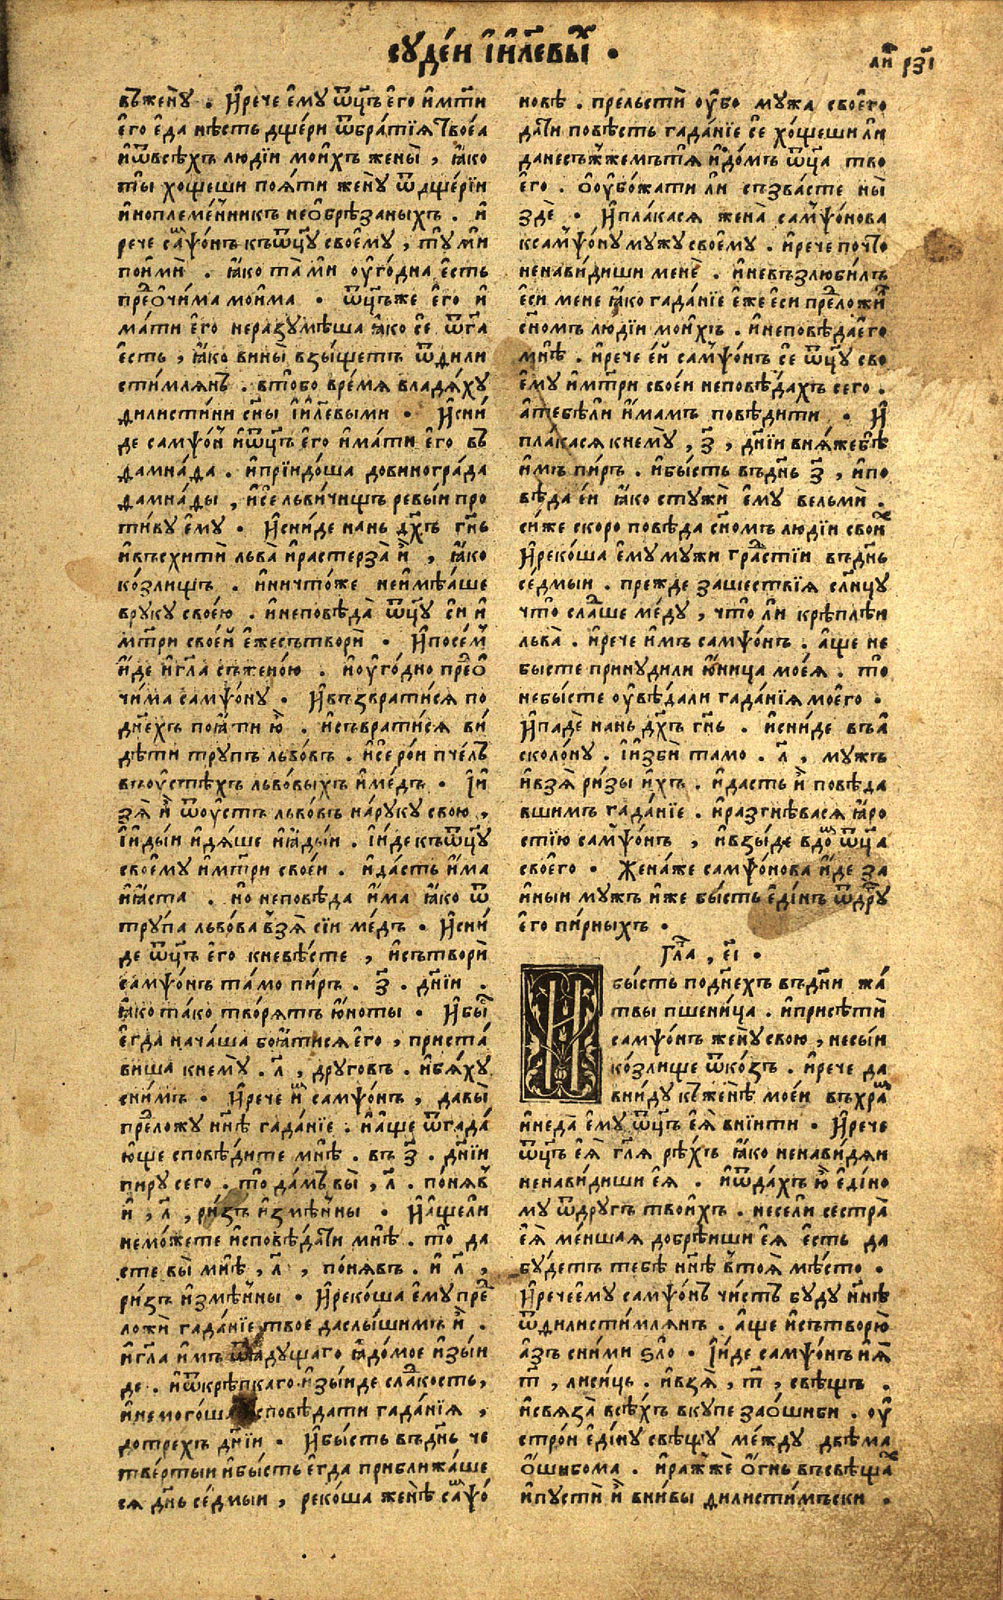 суде́й і҆и҃левы́ .
ли́ рз҃і
въжену̀ . И҆рече е҆му ѿц҃ъ е҆го и҆мт҃и
е҆го е҆да нѣсть дщери ѿбратїѧ твоеа
и҆ѿвсѣхъ людїи мои́хъ жены̀ , ꙗ҆ко
ты̀ хощеши поѧ́ти жену̀ ѿдщерїи
и҆ноплеме́нникъ нео҆брѣзаныхъ . и҆
рече са́мѱонъ къѿц҃у своемꙋ , тꙋ ми
поимѝ . ꙗ҆ко та ми оу҆годна е҆сть
преѻ҆чи́ма мои́ма . ѿц҃ъже е҆го и҆
ма́ти е҆го неразумѣша ꙗ҆ко се ѿга
е҆сть , ꙗ҆ко вины̀ взы́щетъ ѿфили
сти́млянъ . втобо вре́мѧ владѧ́ху
филисти́ни сн҃ы і҆и҃левыми . И҆сни́
де самѱо́н и҆ѿц҃ъ е҆го и҆ма́ти е҆го въ
фамна́фа . и҆прїидо́ша довиногра́да
фамна́фы , и҆се льви́чищъ ревы́и про
ти́ву е҆му . И҆сни́де нань дх҃ъ гн҃ь
и҆въсхитѝ льва̀ и҆растерза̀ и҆ , ꙗ҆ко
ко́злищъ . и҆ничто́же неи҆мѣ́ѧше
вруку своею . и҆неповѣда̀ ѿц҃у си и҆
мт҃ри своей е҆жесътворѝ . И҆посе́м
и҆́де и҆гл҃а съжено́ю . и҆оу҆го́дно преѻ҆
чи́ма самѱо́ну . И҆възврати́сѧ по
дн҃е́хъ поꙗти ю҆̀ . и҆съврати́сѧ ви́
дѣти трупъ льво́въ . и҆се рои пче́лъ
въоу҆стѣхъ льво́выхъ и҆ме́дъ . І҆и
зѧ̀ и҆ ѿоу҆стъ льво́въ на́руку свою ,
і҆и҆ды́и и҆дѧ́ше и҆ꙗды́и . і҆и҆де къѿц҃у
своемꙋ и҆мт҃ри свое́и . и҆дасть и҆́ма
и҆ꙗ҆ста . но неповѣда и҆́ма ꙗ҆ко ѿ
тру́па льво́ва взѧ̀ сїи ме́дъ . И҆сни́
де ѿц҃ъ е҆го кневѣсте , и҆сътворѝ
самѱо́нъ та́мо пи́ръ . з҃ . дн҃їи .
ꙗ҆ко та́ко творѧ́тъ ю҆́ноты . И҆бы
е҆гда нача́ша боꙗ́тисѧ е҆го , приста́
виша кнемꙋ̀ . л҃ , другов . и҆бѧ́ху
сни́мъ . И҆рече и҆мъ самѱо́нъ , давы̀
преложу нн҃ѣ гада́нїе . и҆а҆ще ѿгада́
ю҆ще сповѣдите мнѣ . въ з҃ . дн҃їи
пиру сего . то да́мъ вы̀ , л҃ . поня́в
и҆ , л҃ , ри́зъ и҆змѣнны . И҆а҆щели
немо́жете и҆сповѣда́ти мнѣ . то̀ да
сте вы̀ мнѣ , л҃ , по́нявъ . и҆ л҃ ,
ри́зъ и҆змѣнны . И҆реко́ша е҆му пре
ложѝ гада́нїе твое даслы́шимъ и҆ .
и҆гл҃а и҆мъ ѿꙗдущаго ꙗ҆до́мое и҆зы́и
де . и҆ѿкрѣ́пкаго и҆зы́иде сла́кость ,
и҆немого́ша сповѣдати гада́нїѧ ,
дотрехъ дн҃їи . И҆бы́сть въдн҃ь че
тве́ртыи и҆бы́сть е҆гда прибли́жа́ше
сѧ дн҃ь се́дмыи , реко́ша женѣ самѱо́
новѣ . прельстѝ оу҆бо мужа своего
да́ти повѣсть гада́нїе се хо́щеши ли
данесъжжемътѧ и҆до́мъ ѿц҃а тво
е҆го . о҆оу҆божати ли съзва́сте ны̀
здѐ . И҆пла́касѧ жена̀ самѱо́нова
ксамѱо́ну мужу своему . и҆рече почто̀
ненави́диши менѐ . и҆невъзлюбилъ
е҆си мене ꙗ҆ко гада́нїе е҆же е҆си преложи
сн҃омъ людїи мои́хъ . и҆неповѣда е҆го
мнѣ . и҆рече е҆и самѱо́нъ се ѿц҃у сво
е҆му и҆мт҃ри своеи неповѣ́дахъ сего .
а҆тебѣли и҆́мамъ повѣдити . И҆
пла́касѧ кнемꙋ̀ , з҃ , дн҃їи внѧ́жебѣ
и҆мъ пи́ръ . и҆бы́сть въдн҃ь з҃ , и҆по
вѣда е҆и ꙗ҆ко стужѝ е҆му вельмѝ .
сиже скоро повѣда сн҃омъ людїи свои́х
И҆реко́ша е҆му мужи гра́стїи въдн҃ь
се́дмыи . прежде зашествїѧ слн҃цу
что̀ слаше ме́ду , что̀ ли крѣплѣ́и
льва̀ . и҆рече и҆мъ самѱо́нъ . а҆ще не
бысте принудили ю҆́ница моеѧ̀ . то̀
небы́сте оу҆вѣдали гада́нїѧ моего .
И҆падѐ нань дх҃ъ гн҃ь . и҆сни́де въа҆
сколо́ну . і҆изби̇̀ тамо . л҃ , мужъ
и҆взѧ̀ ри́зы и҆́хъ . и҆дасть и҆ повѣда
вшимъ гада́нїе . и҆разгнѣвасѧ ꙗ҆ро
стїю самѱо́нъ , и҆взы́де вдо ѿц҃а
своего . Жена́же самѱо́нова и҆де за
и҆ныи мужъ и҆же бы́сть е҆ди́нъ ѿдру
е҆го пи́рныхъ .
Гла̀ , е҃і .
И
бы́сть подн҃ехъ въдн҃и жа́
твы пшени́ца . и҆присѣтѝ
самѱо́нъ жену свою , несы́и
ко́злище ѿко́зъ . и҆рече да
вни́иду къженѣ моеи въхра
и҆неда е҆му ѿц҃ъ е҆ѧ̀ вни́ти . И҆рече
ѿц҃ъ е҆ѧ̀ гл҃ѧ рѣхъ ꙗ҆ко ненави́дѧи
ненави́диши е҆ѧ . и҆ѿдахъ ю҆ е҆ди́но
му ѿдругъ твои́хъ . несели сестра̀
е҆ѧ̀ ме́ншая добрѣ́иши е҆ѧ е҆сть да
бу́детъ тебѣ нн҃ѣ втоѧ̀ мѣсто .
И҆речеемꙋ самѱо́нъ чи́стъ буду и҆нн҃ѣ
ѿфилисти́млянъ . а҆ще и҆сътворю̀
а҆зъ сни́ми ѕло . І҆и҆де самѱо́нъ и҆ꙗ
т҃ , лиси́ць . и҆взѧ , т҃ , свѣщъ .
и҆свѧза̀ всѣхъ вкупе заѻ҆шиби . оу҆
строи е҆ди́ну свѣщу ме́жду двѣма
ѻ҆шыбома . и҆ражже ѻ҆гнь въсвѣща́х
и҆пустѝ и҆ вни́вы филисти́мъски .